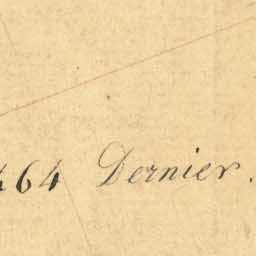 64 Dernier.